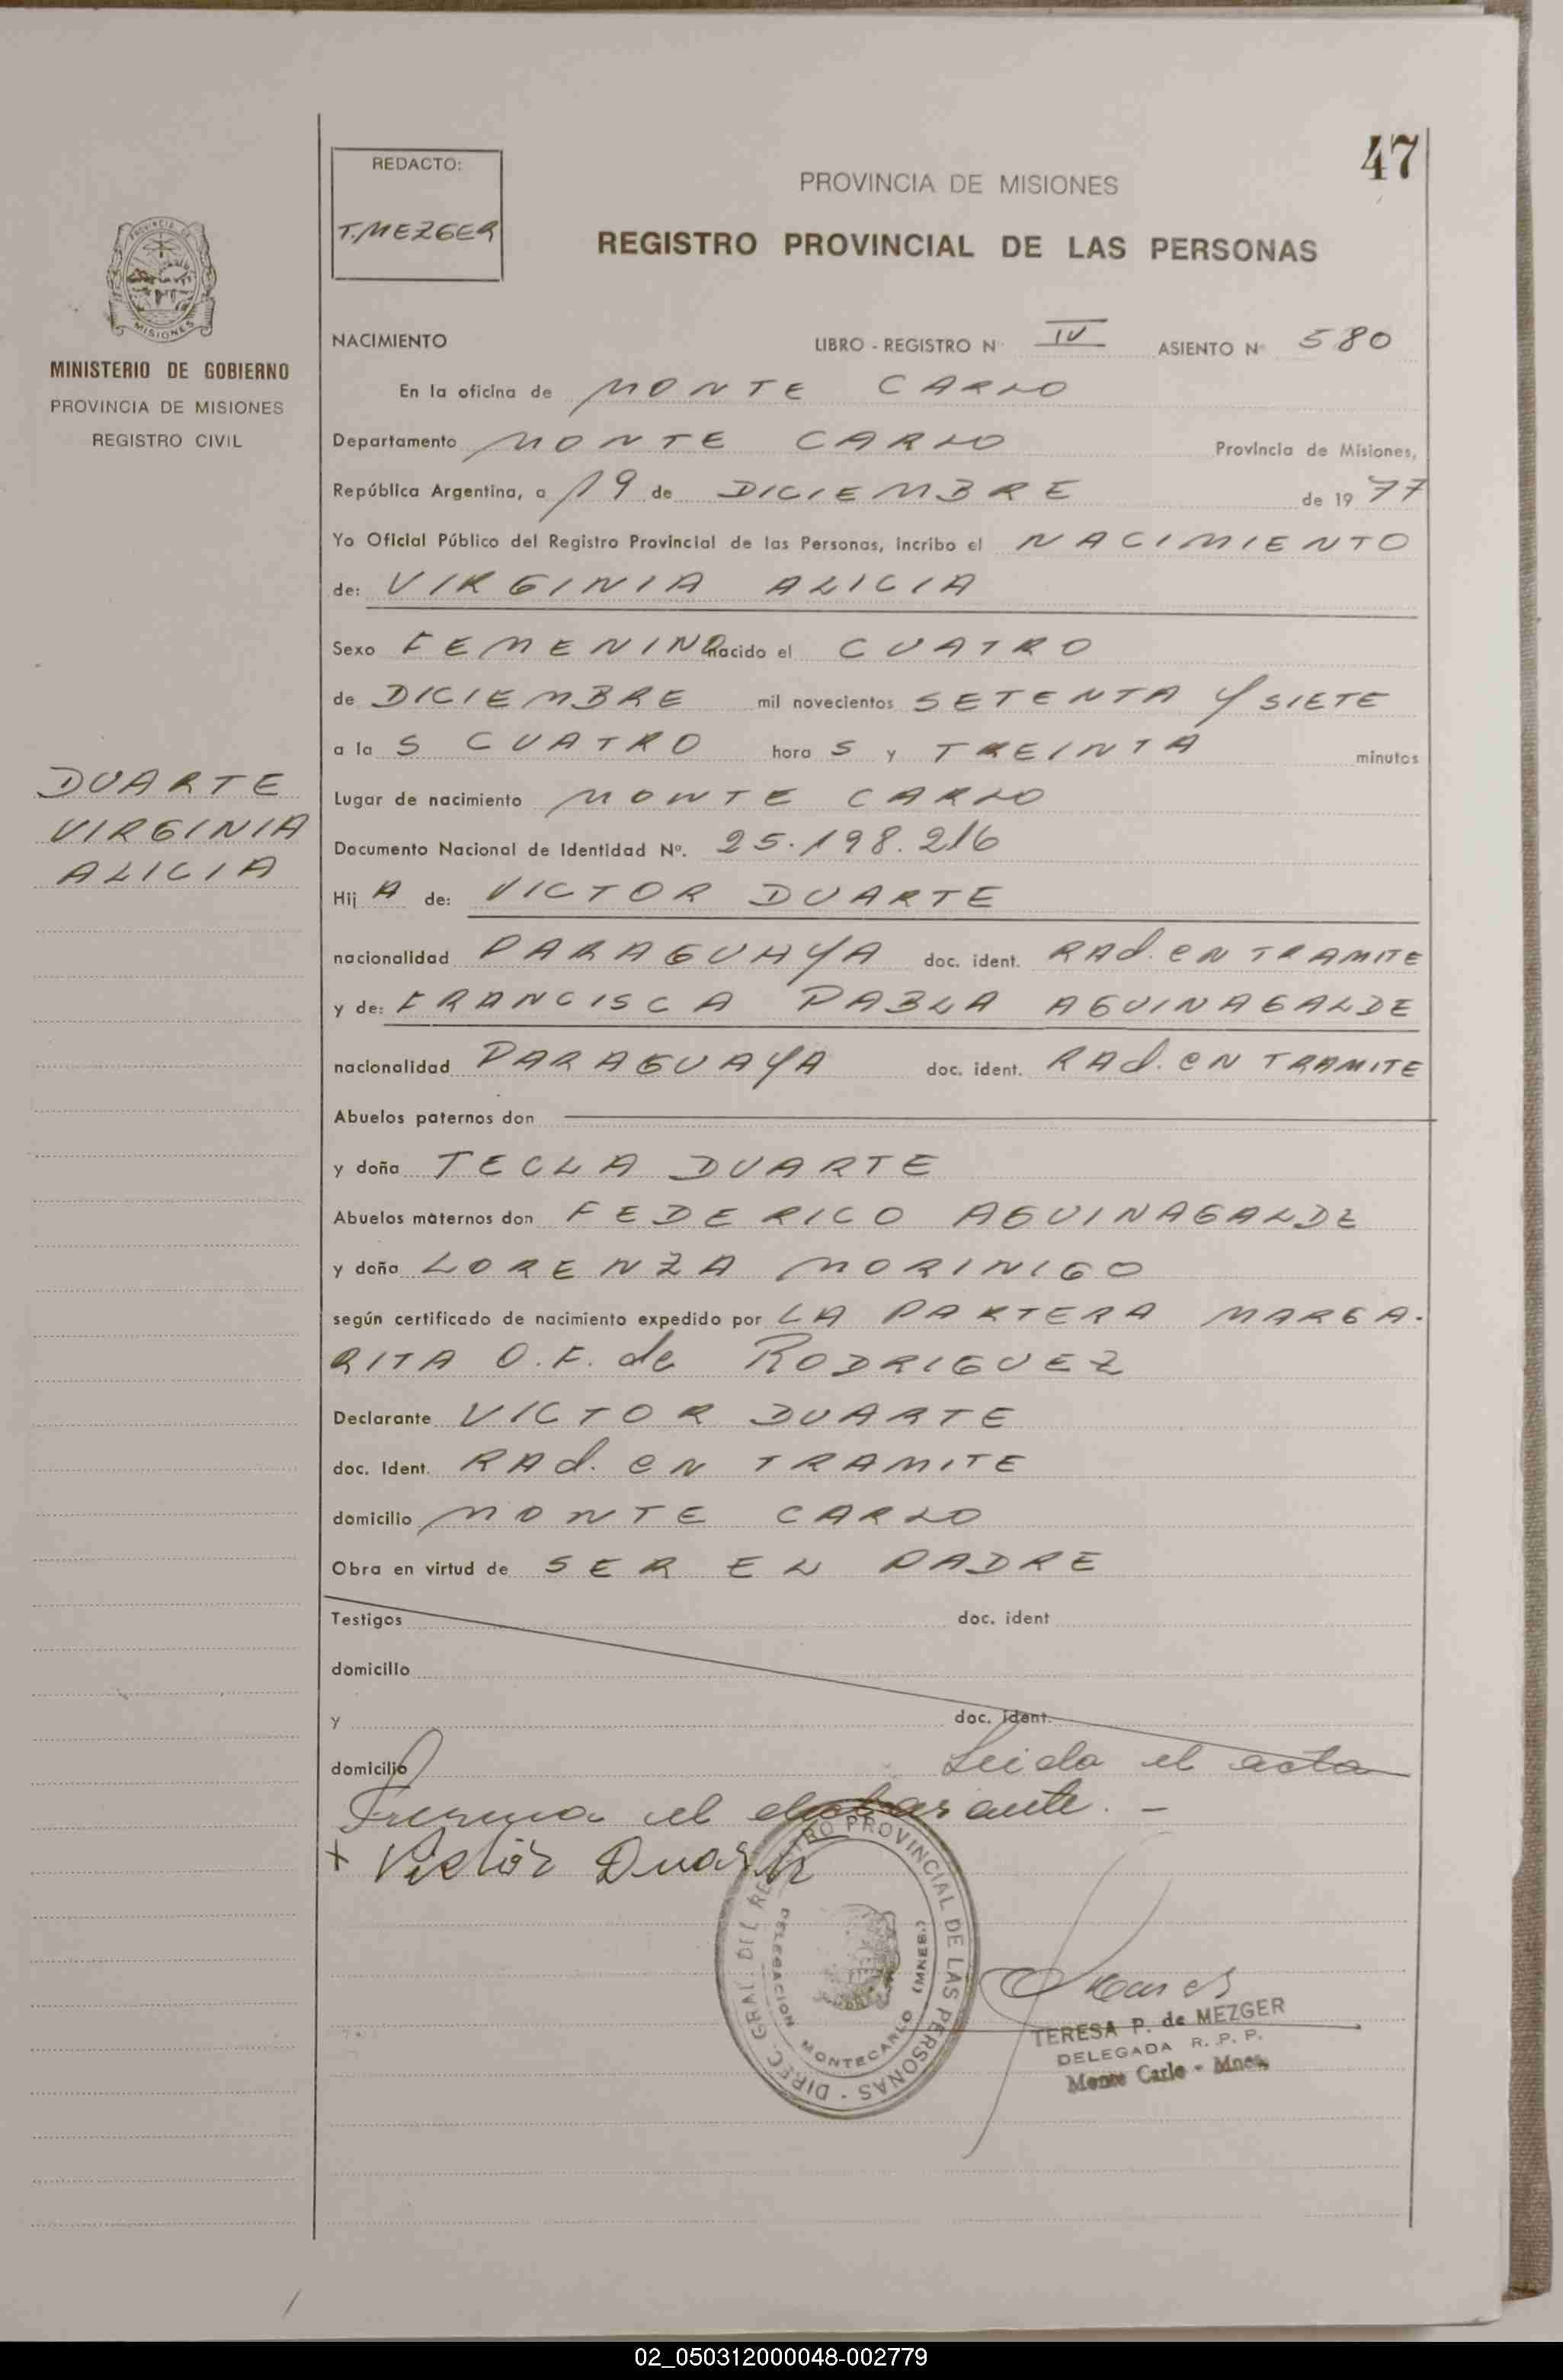 47
REDACTO:
T. MEZGER
PROVINCIA DE MISIONES
REGISTRO PROVINCIAL DE LAS PERSONAS
PROVINCIA DE
MISIONES
MINISTERIO DE GOBIERNO
PROVINCIA DE MISIONES
REGISTRO CIVIL
DUARTE
VIRGINIA
ALICIA
NACIMIENTO LIBRO - REGISTRO N° IV ASIENTO N° 580
En la oficina de MONTE CARLO
Departamento MONTE CARLO Provincia de Misiones,
República Argentina, a 19 de DICIEMBRE de 19 77
Yo Oficial Público del Registro Provincial de las Personas, incribo el NACIMIENTO
de: VIRGINIA ALICIA
Sexo FEMENINO nacido el CUATRO
de DICIEMBRE mil novecientos SETENTA Y SIETE
a la S CUATRO hora S y TREINTA minutos
Lugar de nacimiento MONTE CARLO
Documento Nacional de Identidad Nº. 25.198.216
Hij A de: VICTOR DUARTE
nacionalidad PARAGUAYA doc. ident. RAd. eN TRAMITE
y de: FRANCISCA PABLA AGUINAGALDE
nacionalidad PARAGUAYA doc. ident. RAd. eN TRAMITE
Abuelos paternos don
y doña TECLA DUARTE
Abuelos maternos don FEDERICO AGUINAGALDE
y doña LORENZA MORINIGO
según certificado de nacimiento expedido por LA PARTERA MARGA-
RITA O.F. de RODRIGUEZ
Declarante VICTOR DUARTE
doc. Ident. RAd. eN TRAMITE
domicilio MONTE CARLO
Obra en virtud de SER EL PADRE
Testigos doc. ident
domicilio
y doc. ident.
domicilio Leida el acta
Firma el declarante. -
+ Victor Duarte
DIREC. GRAL. DEL REGISTRO PROVINCIAL DE LAS PERSONAS -
DELEGACION MONTECARLO (MNES.)
TERESA P. de MEZGER
DELEGADA R. P. P.
Monte Carlo - Mnes.
02_050312000048-002779